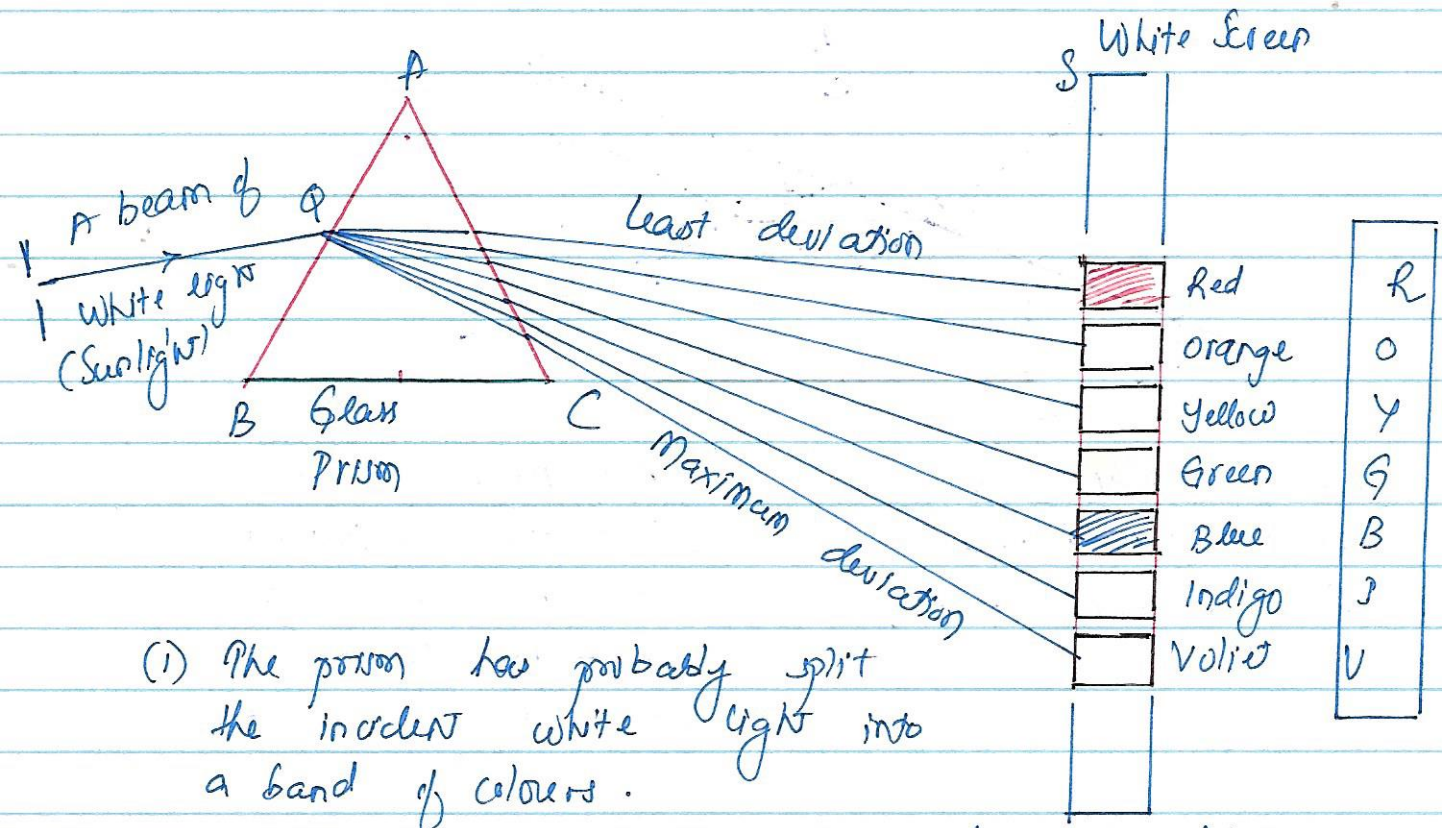 White Screen
S
A
A beam of
Q
White light
(Sunlight)
Least deviation
B
Glass
Prism
C
Maximum deviation
Red R
Orange O
Yellow Y
Green G
Blue B
Indigo I
Voliet V
(i) The prism has probably split
the incident white light into
a band of colours.